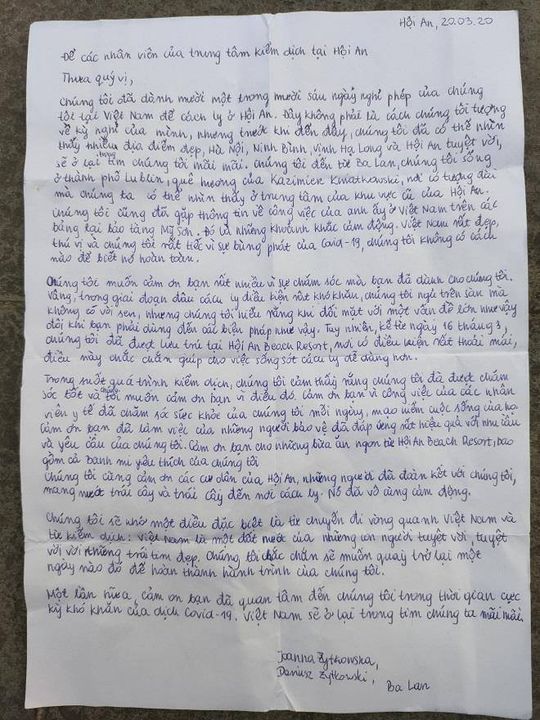 Hội An, 20.03.20
Để các nhân viên của trung tâm kiểm dịch tại Hội An
Thưa quý vị,
Chúng tôi đã dành mười một trong mười sáu ngày nghỉ phép của chúng
tôi tại Việt Nam để cách ly ở Hội An. Đây không phải là cách chúng tôi tưởng
về kỳ nghỉ của mình, nhưng trước khi đến đây, chúng tôi đã có thể nhìn
thấy nhiều địa điểm đẹp, Hà Nội, Ninh Bình, Vịnh Hạ Long và Hội An tuyệt vời,
sẽ ở lại trong tim chúng tôi mãi mãi. Chúng tôi đến từ Ba Lan, chúng tôi sống
ở thành phố Lublin, quê hương của Kazimierz Kwiatkowski, nơi có tượng đài
mà chúng ta có thể nhìn thấy ở trung tâm của khu vực cũ của Hội An.
Chúng tôi cũng đã gặp thông tin về công việc của anh ấy ở Việt Nam trên các
bảng tại bảo tàng Mỹ Sơn. Đó là những khoảnh khắc cảm động. Việt Nam rất đẹp,
thú vị và chúng tôi rất tiếc vì sự bùng phát của Covid-19, chúng tôi không có cách
nào để biết nó hoàn toàn.
Chúng tôi muốn cảm ơn bạn rất nhiều vì sự chăm sóc mà bạn đã dành cho chúng tôi.
Vâng, trong giai đoạn đầu cách ly điều kiện rất khó khăn, chúng tôi ngủ trên sàn mà
không có vòi sen, nhưng chúng tôi hiểu rằng khi đối mặt với một vấn đề lớn như vậy
đôi khi bạn phải dùng đến các biện pháp như vậy. Tuy nhiên, kể từ ngày 16 tháng 3,
chúng tôi đã được lưu trú tại Hội An Beach Resort, nơi có điều kiện rất thoải mái,
điều này chắc chắn giúp cho việc sống sót cách ly dễ dàng hơn.
Trong suốt quá trình kiểm dịch, chúng tôi cảm thấy rằng chúng tôi đã được chăm
sóc tốt và chúng tôi muốn cảm ơn bạn vì điều đó. Cảm ơn bạn vì công việc của các nhân
viên y tế đã chăm sóc sức khỏe của chúng tôi mỗi ngày, mạo hiểm cuộc sống của họ.
Cảm ơn bạn đã làm việc của những người bảo vệ đã đáp ứng rất hiệu quả với nhu cầu
và yêu cầu của chúng tôi. Cảm ơn bạn cho những bữa ăn ngon từ Hội An Beach Resort, bao
gồm cả bánh mì yêu thích của chúng tôi
Chúng tôi cũng cảm ơn các cư dân của Hội An, những người đã đoàn kết với chúng tôi,
mang nước trái cây và trái cây đến nơi cách ly. Nó đã vô cùng cảm động.
Chúng tôi sẽ nhớ một điều đặc biệt là từ chuyến đi vòng quanh Việt Nam và
từ kiểm dịch: Việt Nam là một đất nước của những con người tuyệt vời, tuyệt
vời với những trái tim đẹp. Chúng tôi chắc chắn sẽ muốn quay trở lại một
ngày nào đó để hoàn thành hành trình của chúng tôi.
Một lần nữa, cảm ơn bạn đã quan tâm đến chúng tôi trong thời gian cực
kỳ khó khăn của dịch Covid-19. Việt Nam sẽ ở lại trong tim chúng ta mãi mãi.
Joanna Żytkowska,
Dariusz Żytkowski,
Ba Lan